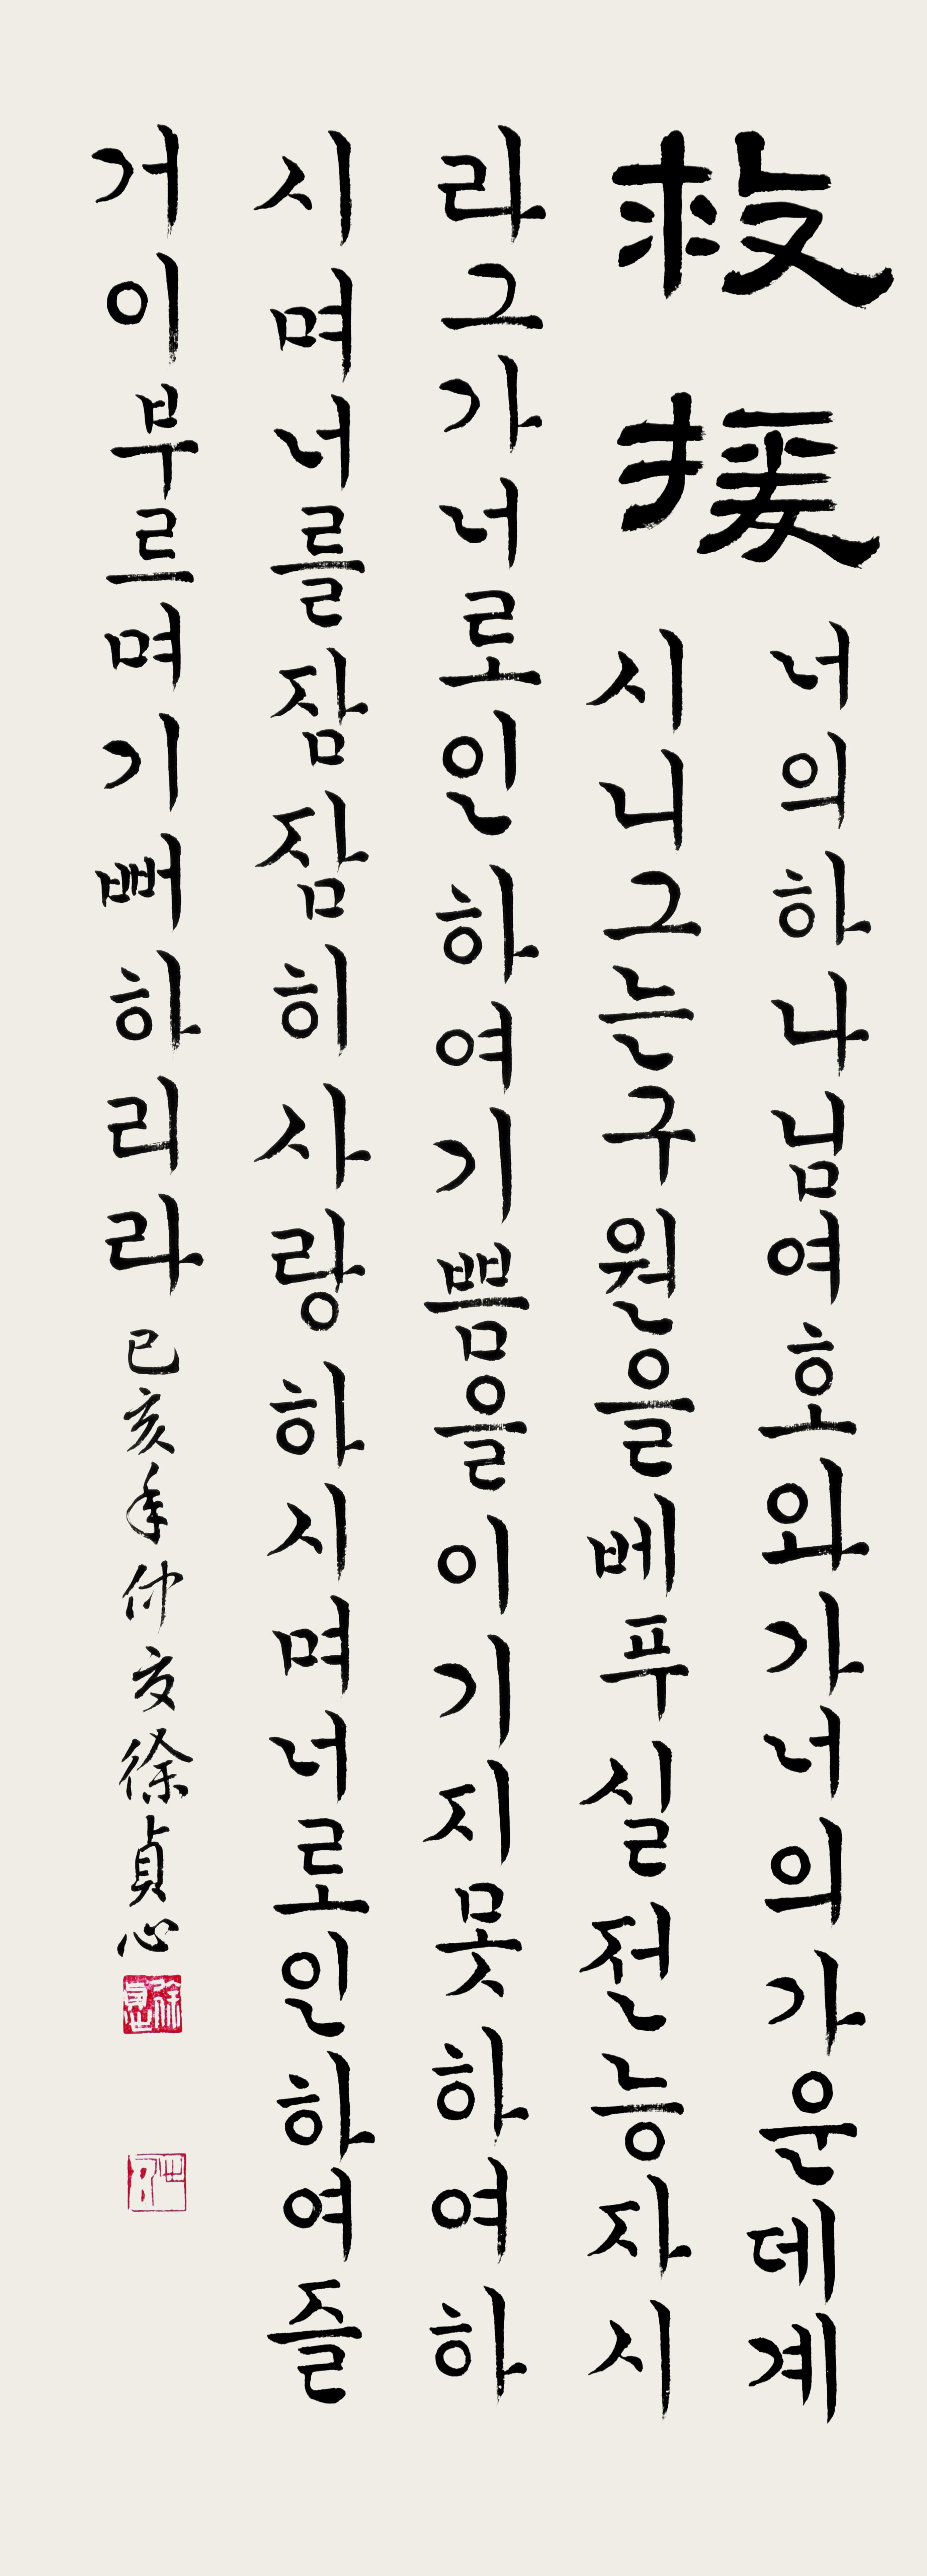 救援
너의하나님여호와가너의가운데계
시니그는구원을베푸실전능자시
라그가너로인하여기쁨을이기지못하여하
시며너를잠잠히사랑하시며너로인하여즐
거이부르며기뻐하리라 己亥年仲夏徐貞心